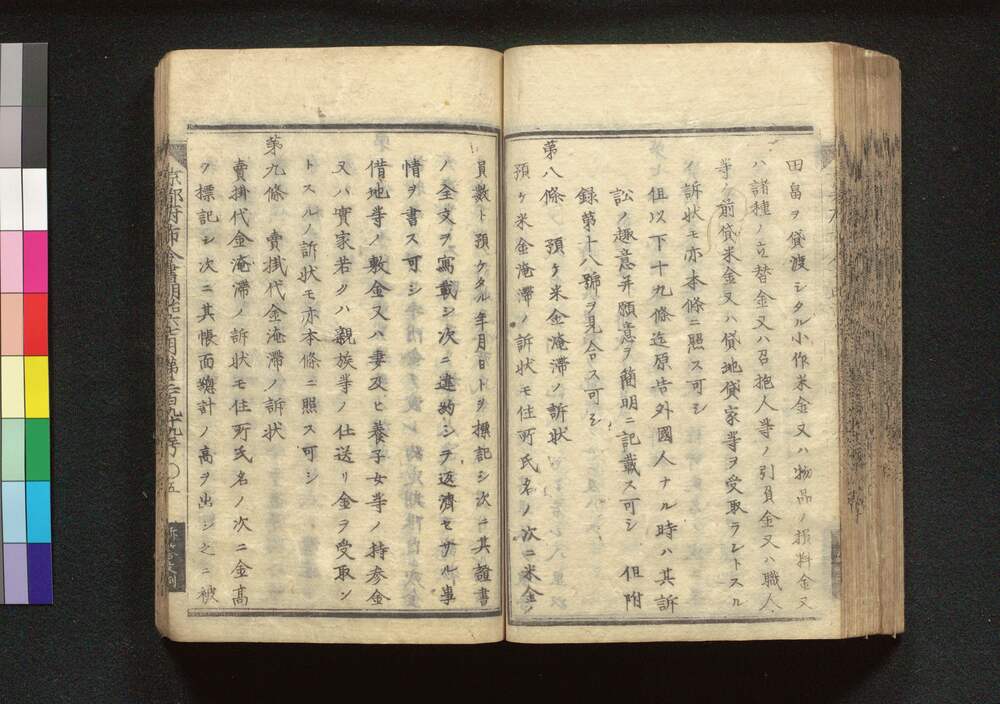 田畠ヲ貸渡シタル小作米金又ハ物品ノ損料金又
ハ諸種ノ立替金又ハ召抱人等ノ引負金又ハ職人
等ヘ前貸米金又ハ貸地貸家等ヲ受取ラントスル
ノ訴状モ亦本條ニ照ス可シ
但以下十九條迄原告外國人ナル時ハ其訴
訟ノ趣意并願意ヲ簡明ニ記載ス可シ 但附
録第十八號ヲ見合ス可シ
第八條 預ケ米金淹滞ノ訴状
預ケ米金淹滞ノ訴状モ住所氏名ノ次ニ米金ノ
員數ト預ケタル年月日トヲ標記シ次ニ其證書
ノ全文ヲ寫載シ次ニ違約シテ返濟セサル事
情ヲ書ス可シ
借地等ノ敷金又ハ妻及ヒ養子女等ノ持参金
又ハ實家若クハ親族等ノ仕送リ金ヲ受取ン
トスルノ訴状モ亦本條ニ照ス可シ
第九條 賣掛代金淹滞ノ訴状
賣掛代金淹滞ノ訴状モ住所氏名ノ次ニ金高
ヲ標記シ次ニ其帳面總計ノ高ヲ出シ之ニ被
京都府布令書明治六七月第二百九十九号 〇五
訴答文例